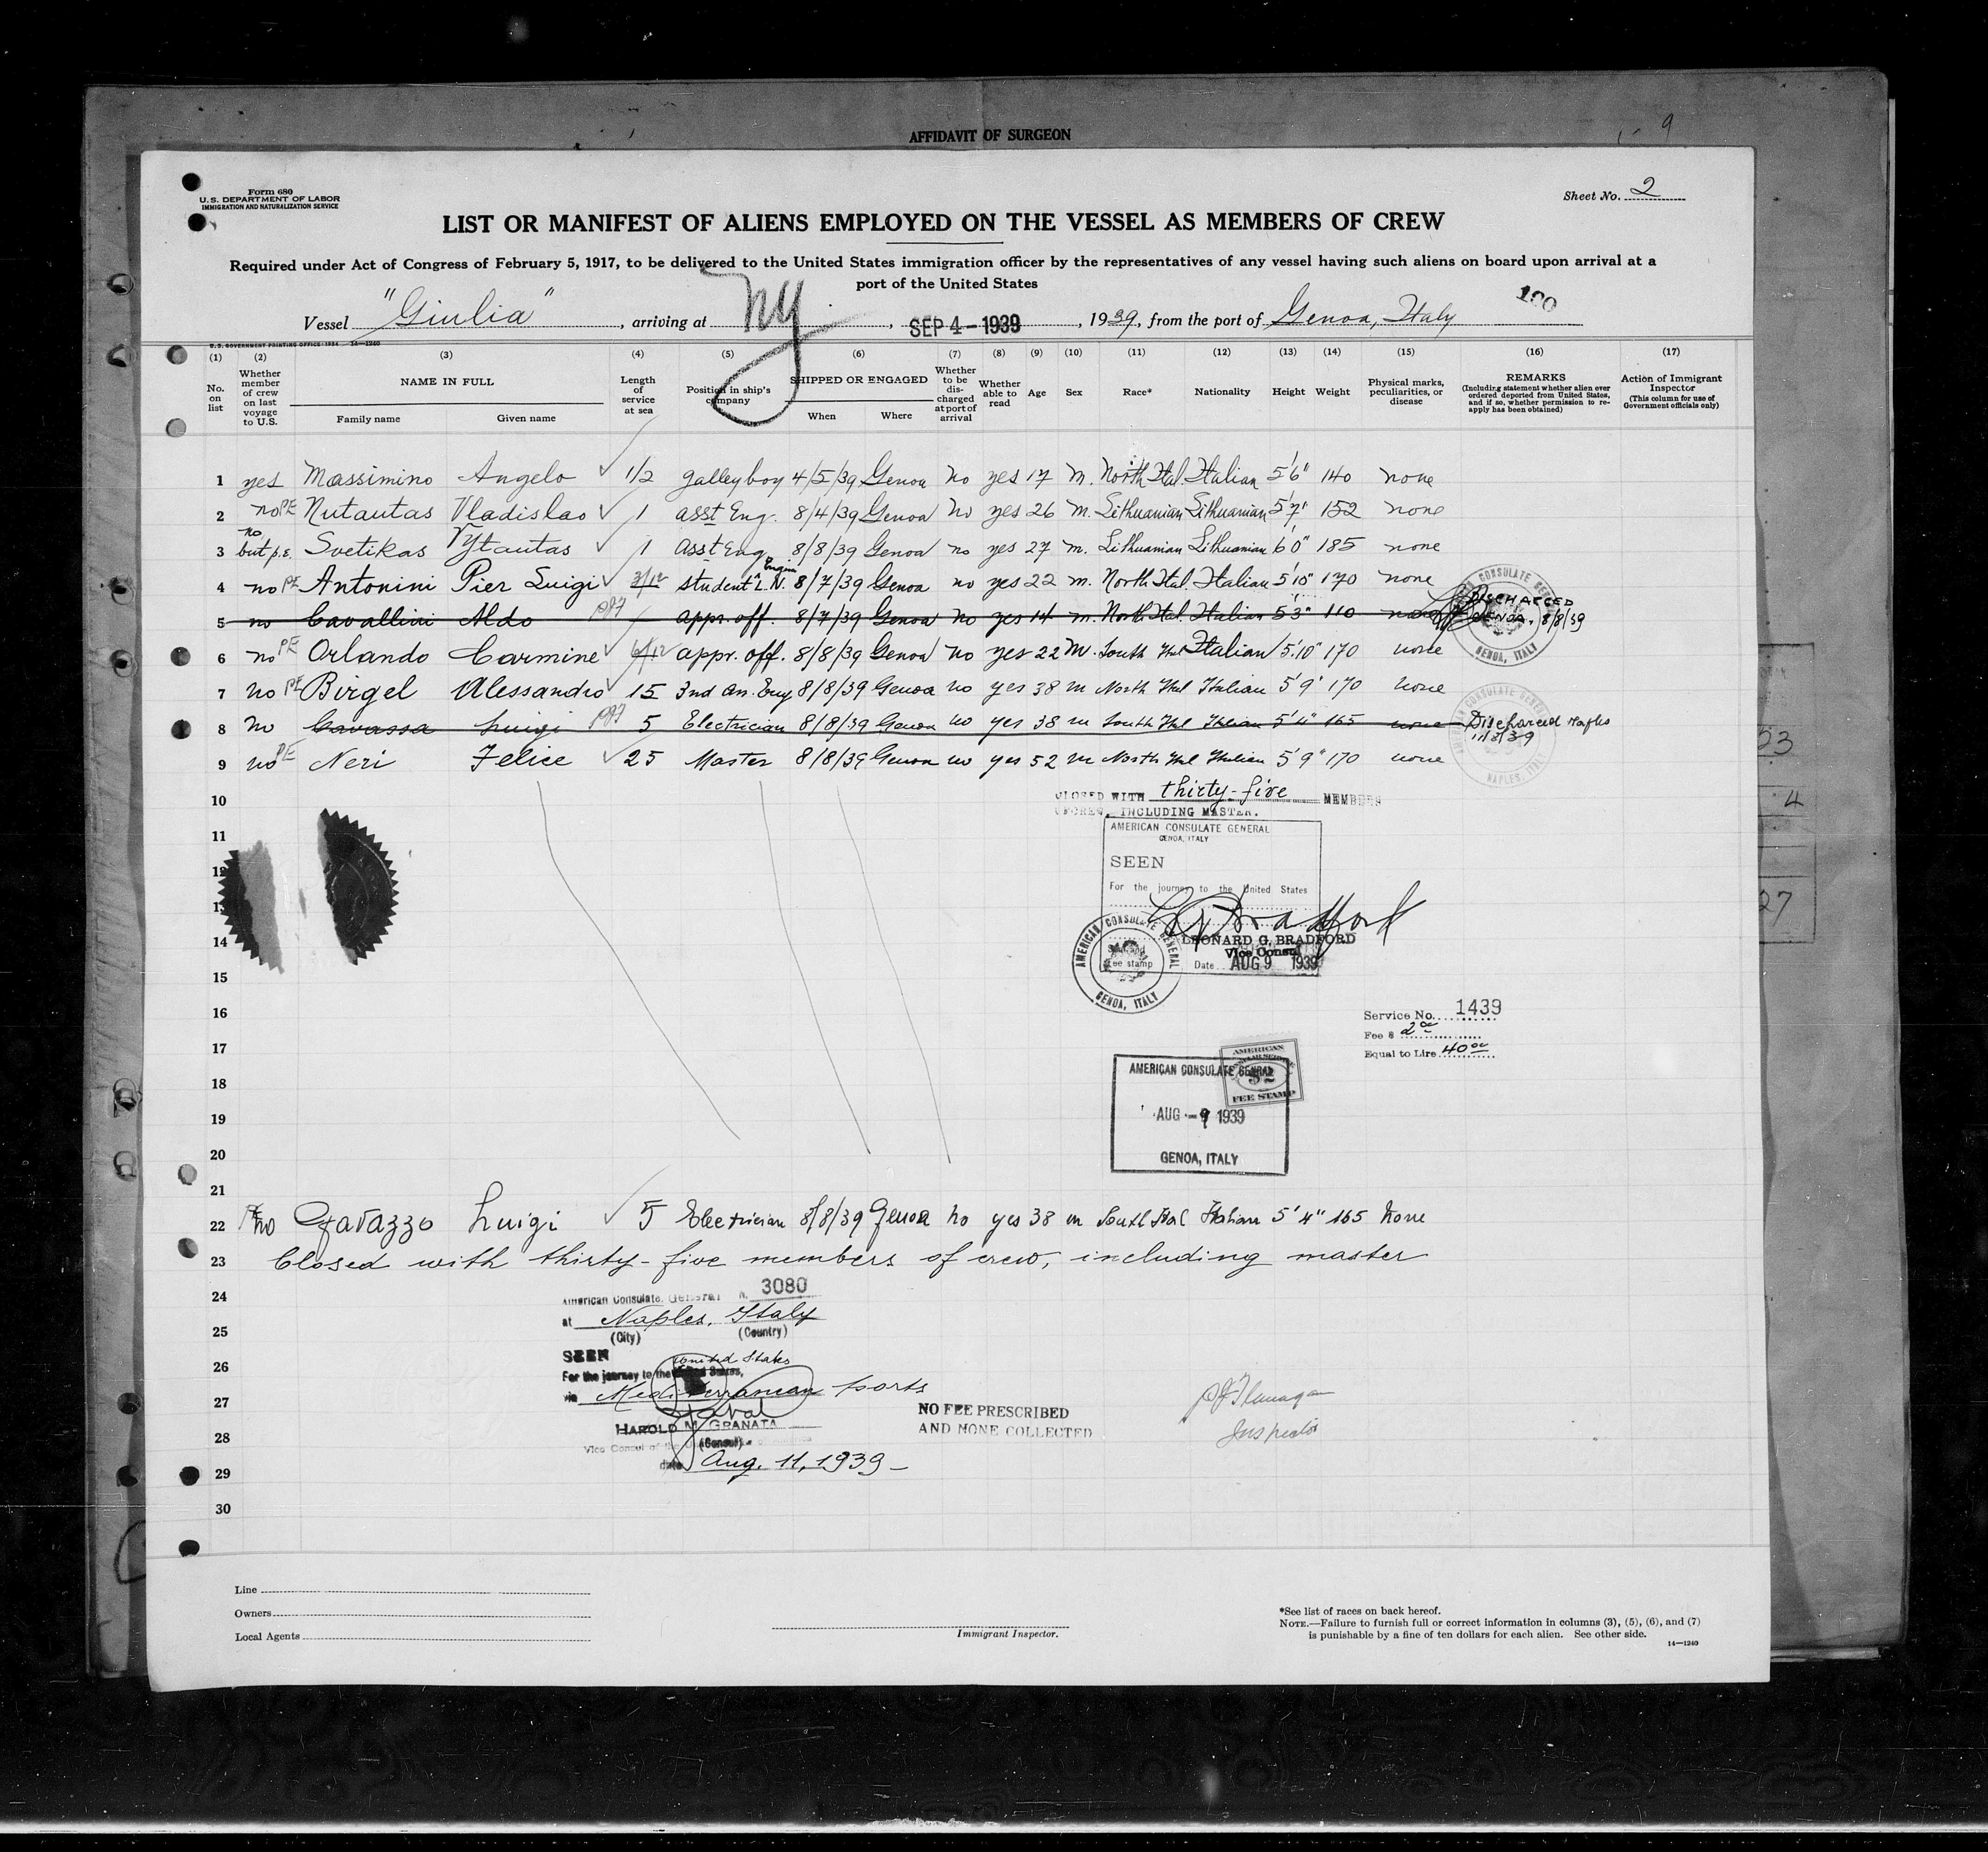 AFFIDAVIT OF SURGEON
9
Form 680
U.S. DEPARTMENT OF LABOR
IMMIGRATION AND NATURALIZATION SERVICE
Sheet No. 2
LIST OR MANIFEST OF ALIENS EMPLOYED ON THE VESSEL AS MEMBERS OF CREW
Required under Act of Congress of February 5, 1917, to be delivered to the United States immigration officer by the representatives of any vessel having such aliens on board upon arrival at a
port of the United States
Vessel "Giulia", arriving at ny, SEP 4-1939, 1939, from the port of Genoa, Italy
100
U.S. GOVERNMENT PRINTING OFFICE: 1934 14-1240
(1) (2) (3) (4) (5) (6) (7) (8) (9) (10) (11) (12) (13) (14) (15) (16) (17)
No. on list
Whether member of crew on last voyage to U.S.
NAME IN FULL
Family name Given name
Length of service at sea
Position in ship's company
SHIPPED OR ENGAGED
When Where
Whether to be discharged at port of arrival
Whether able to read
Age
Sex
Race*
Nationality
Height
Weight
Physical marks, peculiarities, or disease
REMARKS
(Including statement whether alien ever ordered deported from United States, and if so, whether permission to reapply has been obtained)
Action of Immigrant Inspector
(This column for use of Government officials only)
1 yes Massimino Angelo 1/2 galleyboy 4/5/39 Genoa no yes 17 m. North Ital. Italian 5'6" 140 none
2 no PE Nutautas Vladislao 1 asst Eng. 8/4/39 Genoa no yes 26 m. Lithuanian Lithuanian 5'7' 152 none
3 no but p.e. Svetikas Vytautas 1 asst Eng. 8/8/39 Genoa no yes 27 m. Lithuanian Lithuanian 6'0" 185 none
4 no PE Antonini Pier Luigi 3/12 student Engin L.N. 8/7/39 Genoa no yes 22 m. North Ital. Italian 5'10" 170 none
5 no Cavallini Aldo 1 appr. off. 8/7/39 Genoa no yes 14 m. North Ital. Italian 5'3" 110 none DISCHARGED GENOA. 8/8/39
6 no PE Orlando Carmine 6/12 appr. off. 8/8/39 Genoa no yes 22 M. South Ital Italian 5'.10" 170 none
7 no PE Birgel Alessandro 15 3nd an. Eng 8/8/39 Genoa no yes 38 m North Ital Italian 5'9' 170 none
8 no Gavassa Luigi 5 Electrician 8/8/39 Genoa no yes 38 m South Ital Italian 5'4" 165 none Discharged Naples 11/8/39
9 no PE Neri Felice 25 Master 8/8/39 Genoa no yes 52 m North Ital Italian 5'9" 170 none
CLOSED WITH thirty-five MEMBERS
OF CREW, INCLUDING MASTER.
10
11
12
13
14
15
16
17
18
19
20
21
AMERICAN CONSULATE GENERAL
GENOA, ITALY
SEEN
For the journey to the United States
LEONARD G. BRADFORD
Vice Consul
Fee stamp
Date AUG 9 1939
AMERICAN CONSULATE GENERAL
GENOA, ITALY
Service No. 1439
Fee $ 2 00
Equal to Lire 40 00
AMERICAN CONSULATE GENERAL
AUG -9 1939
GENOA, ITALY
AMERICAN
FEE STAMP
22 PE no Gavazzo Luigi 5 Electrician 8/8/39 Genoa no yes 38 m South Ital Italian 5'4" 165 None
23 Closed with thirty-five members of crew, including master
24
25
26
27
28
29
30
American Consulate General N. 3080
at Naples, Italy
(City) (Country)
SEEN
United States
For the journey to the United States,
via Mediterranean ports
HAROLD M. GRANATA
Vice Consul of the
(Consul)
date Aug. 11, 1939
NO FEE PRESCRIBED
AND NONE COLLECTED
Inspector
Line
Owners
Local Agents
Immigrant Inspector.
*See list of races on back hereof.
NOTE.—Failure to furnish full or correct information in columns (3), (5), (6), and (7)
is punishable by a fine of ten dollars for each alien. See other side.
14—1240
53
4
27